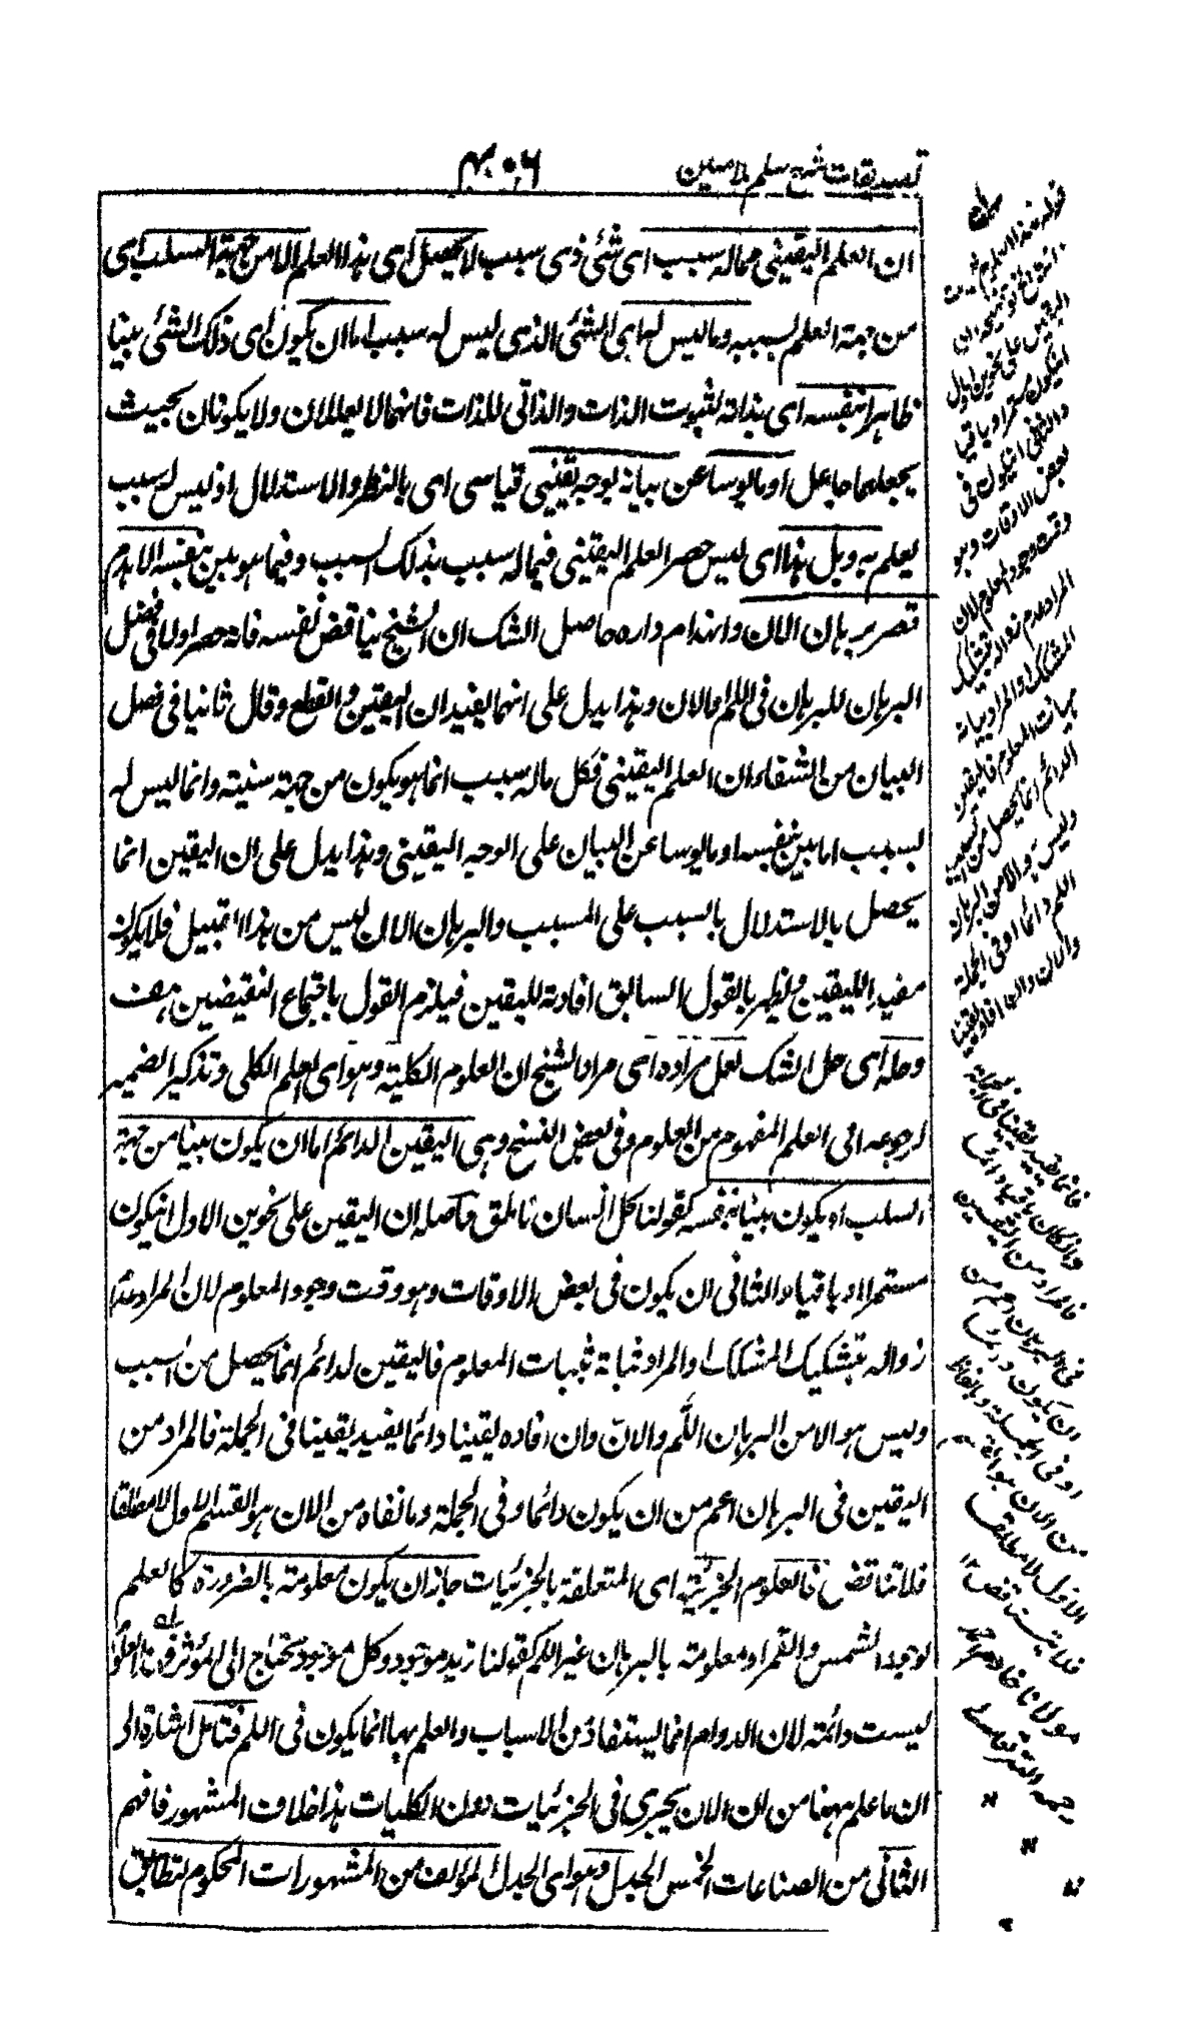 تصديقات شرح سلم ملا مبين
٤٠٦
ان العلم اليقيني مما له سبب اى شئ ذى سبب لا يحصل اى هذا العلم الا من جهة السبب اى
من جهة العلم بسببه وما ليس له اى الشئ الذى ليس له سبب اما ان يكون اى ذلك الشئ بينا
ظاهرا بنفسه اى بذاته لثبوت الذات والذاتي للذات فانهما لا يعللان ولا يكونان بحيث
يجعلهما جاعل او مايوسا عن بيانه بوجه يقيني قياسى اى بالنظر والاستدلال اذ ليس له سبب
يعلم به وهل هذا اى ليس حصر العلم اليقيني فيما له سبب بذلك السبب وفيما هو بين بنفسه الا هدم
قصر برهان الان وانهدام داره حاصل الشك ان الشيخ يناقض نفسه فانه حصر اولا فى فصل
البرهان للبرهان فى اللم والان وهذا يدل على انهما يفيدان اليقين والقطع وقال ثانيا فى فصل
البيان من الشفاء ان العلم اليقيني فكل ما له سبب انما هو يكون من جهة سببه وانما ليس له
سبب اما بين بنفسه او مايوسا عن البيان على الوجه اليقيني وهذا يدل على ان اليقين انما
يحصل بالاستدلال بالسبب على المسبب والبرهان الان ليس من هذا القبيل فلا يكون
مفيدا لليقين ويظهر بالقول السابق افادته لليقين فيلزم القول باجتماع النقيضين هف
وحله اى حل الشك لعل مراده اى مراد الشيخ ان العلوم الكلية وهو اى العلم الكلى وتذكير الضمير
لرجوعه الى العلم المفهوم من العلوم وفى بعض النسخ وهى اليقين الدائم اما ان يكون بينا من جهة
السبب او يكون بينا بنفسه كقولنا كل انسان ناطق حاصله ان اليقين على نحوين الاول ان يكون
مستمرا وباقيا والثانى ان يكون فى بعض الاوقات وهو وقت وجود المعلوم لان المراد عدم
زواله بتشكيك المشكك والمراد ثباته ثبات المعلوم فاليقين الدائم انما يحصل من السبب
وليس هو الا من البرهان اللم والان وان افاده يقينا دائما يفيد يقينا فى الجملة فالمراد من
اليقين فى البرهان اعم من ان يكون دائما وفى الجملة وما نفاه من الان هو القسم الاول لا مطلقا
فلا تناقض فالعلوم الجزئية اى المتعلقة بالجزئيات جاز ان يكون معلومة بالضرورة كالعلم
بوجود الشمس والقمر او معلومة بالبرهان غير اللم كقولنا زيد موجود وكل موجود يحتاج الى المؤثر وهذه العلوم
ليست دائمة لان الدوام انما يستفاد من الاسباب والعلم بها انما يكون فى اللم فتامل اشارة الى
ان ما علم ههنا من ان الان يجرى فى الجزئيات دون الكليات هذا خلاف المشهور فافهم
الثانى من الصناعات الخمس الجدل وهو اى الجدل المؤلف من المشهورات المحكوم لتطابق
اما ان يكون مستمرا وباقيا
والثانى ان يكون فى
بعض الاوقات وهو
وقت وجود المعلوم لان
المراد عدم زواله بتشكيك
المشكك او المراد بثباته
ثبات المعلوم فاليقين
الدائم انما يحصل من السبب
وليس هو الا من البرهان
اللم دائما او فى الجملة
والان وان افاد يقينا
فانما يفيد يقينا فى الجملة
وان كان باقيا دائما
فالمراد من اليقين
فى البرهان اعم من
ان يكون دائما
او فى الجملة وما نفاه
من الان هو القسم
الاول لا مطلقا
فلا تناقض ١٢
مولانا خادم احمد
رحمه الله تعالى